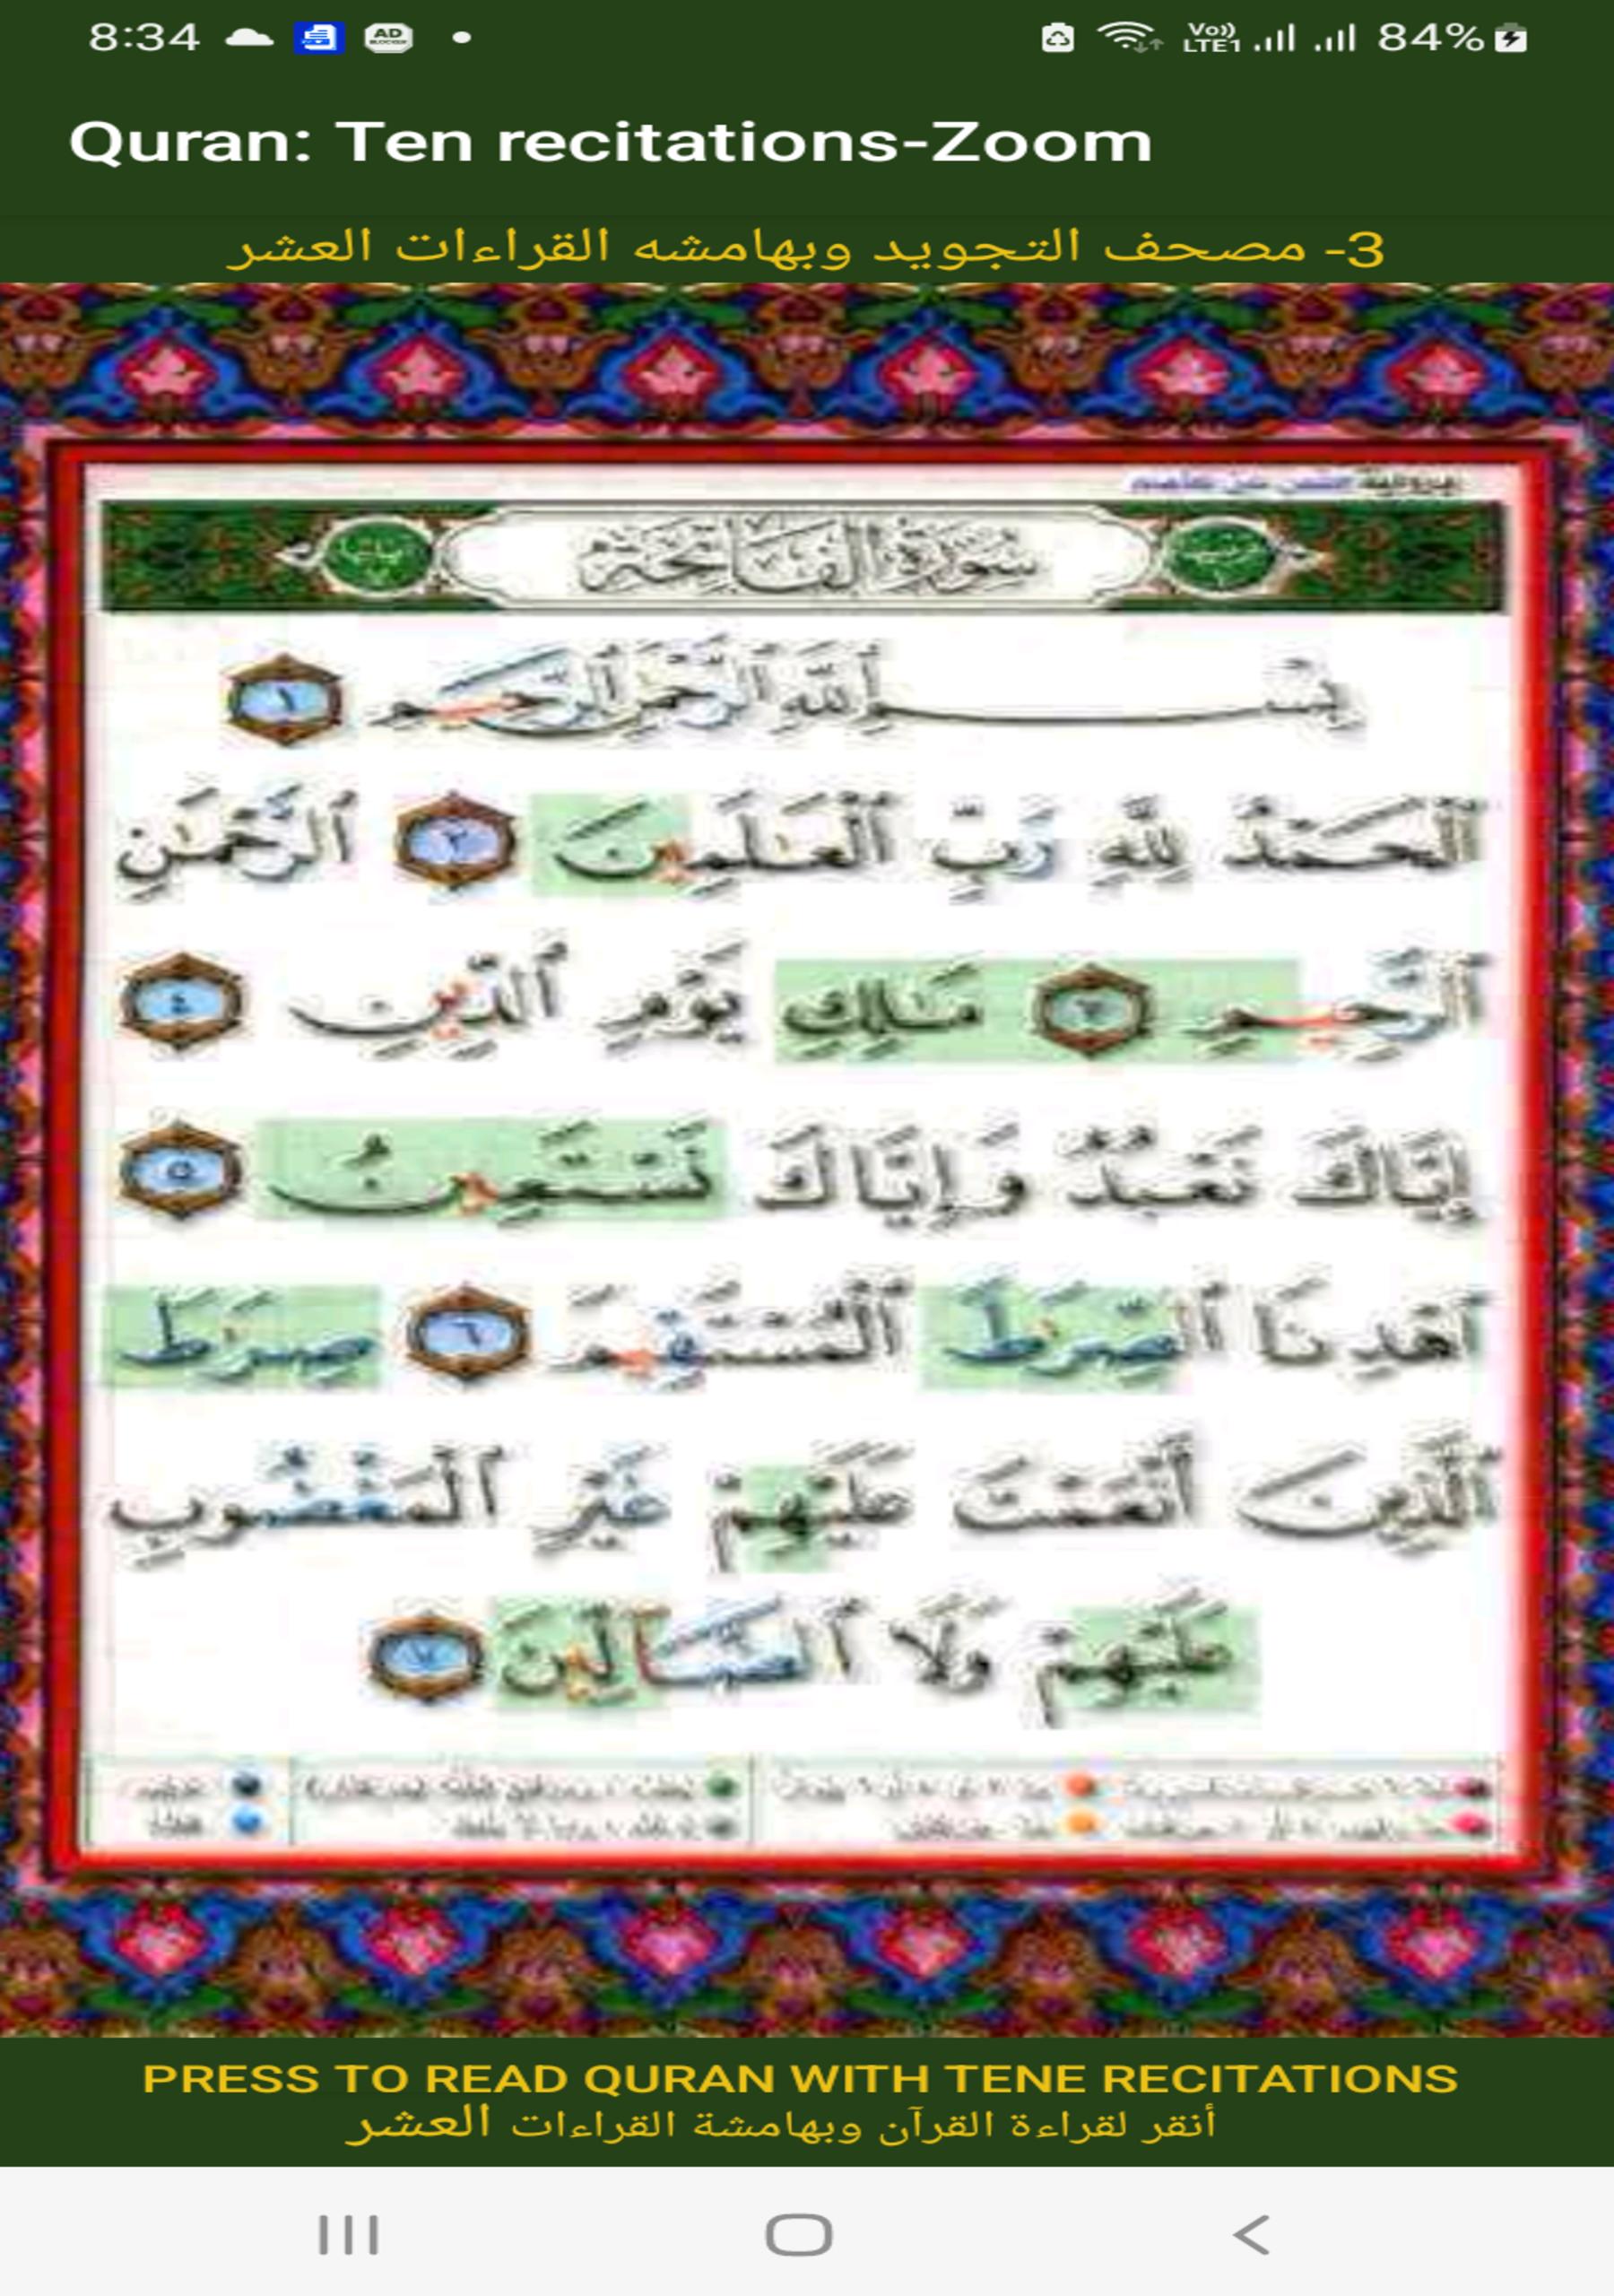 8:34
AD BLOCKER
Vo)) LTE1
84%
Quran: Ten recitations-Zoom
3- مصحف التجويد وبهامشه القراءات العشر
سُورَةُ الفَاتِحَةِ
بِسْمِ ٱللَّهِ ٱلرَّحْمَٰنِ ٱلرَّحِيمِ ١
ٱلْحَمْدُ لِلَّهِ رَبِّ ٱلْعَٰلَمِينَ ٢ ٱلرَّحْمَٰنِ
ٱلرَّحِيمِ ٣ مَٰلِكِ يَوْمِ ٱلدِّينِ ٤
إِيَّاكَ نَعْبُدُ وَإِيَّاكَ نَسْتَعِينُ ٥
ٱهْدِنَا ٱلصِّرَٰطَ ٱلْمُسْتَقِيمَ ٦ صِرَٰطَ
ٱلَّذِينَ أَنْعَمْتَ عَلَيْهِمْ غَيْرِ ٱلْمَغْضُوبِ
عَلَيْهِمْ وَلَا ٱلضَّآلِّينَ ٧
PRESS TO READ QURAN WITH TENE RECITATIONS
أنقر لقراءة القرآن وبهامشة القراءات العشر